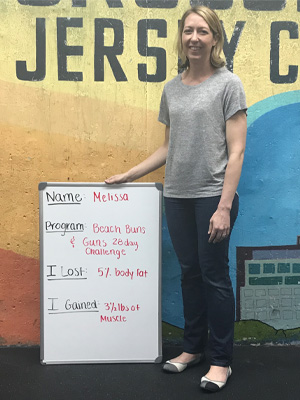 JERSEY C
Name: Melissa
Program: Beach Buns
& Guns 28 day
Challenge
I Lost: 5% body fat
I Gained: 3½ lbs of
Muscle